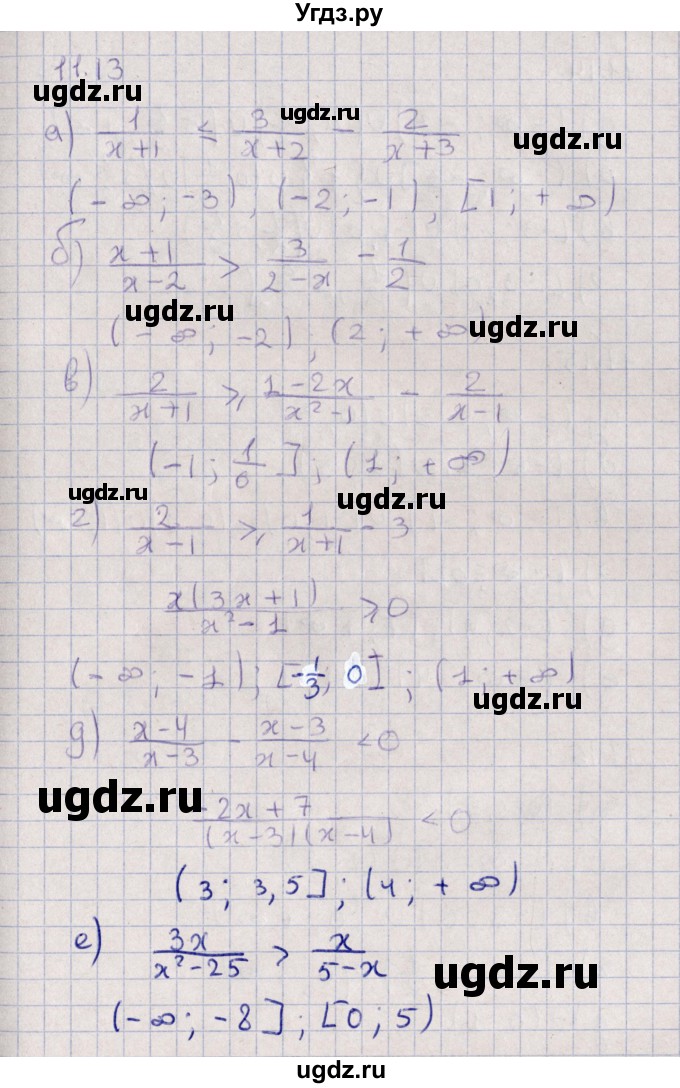 Угдз.ру
11.13
ugdz.ru
ugdz.ru
а) 1/(x+1) ≤ 3/(x+2) - 2/(x+3)
ugdz.ru
(-∞; -3); (-2; -1); [1; +∞)
б) (x+1)/(x-2) > 3/(2-x) - 1/2
ugdz.ru
ugdz.ru
(-∞; -2]; (2; +∞)
в) 2/(x+1) ≥ (1-2x)/(x²-1) - 2/(x-1)
ugdz.ru
(-1; 1/6]; (1; +∞)
ugdz.ru
ugdz.ru
г) 2/(x-1) ≥ 1/(x+1) - 3
x(3x+1)/(x²-1) ≥ 0
ugdz.ru
(-∞; -1); [-1/3; 0]; (1; +∞)
ugdz.ru
д) (x-4)/(x-3) - (x-3)/(x-4) < 0
ugdz.ru
(-2x+7)/((x-3)(x-4)) < 0
ugdz.ru
(3; 3,5]; (4; +∞)
е) 3x/(x²-25) > x/(5-x)
ugdz.ru
(-∞; -8]; [0; 5)
ugdz.ru